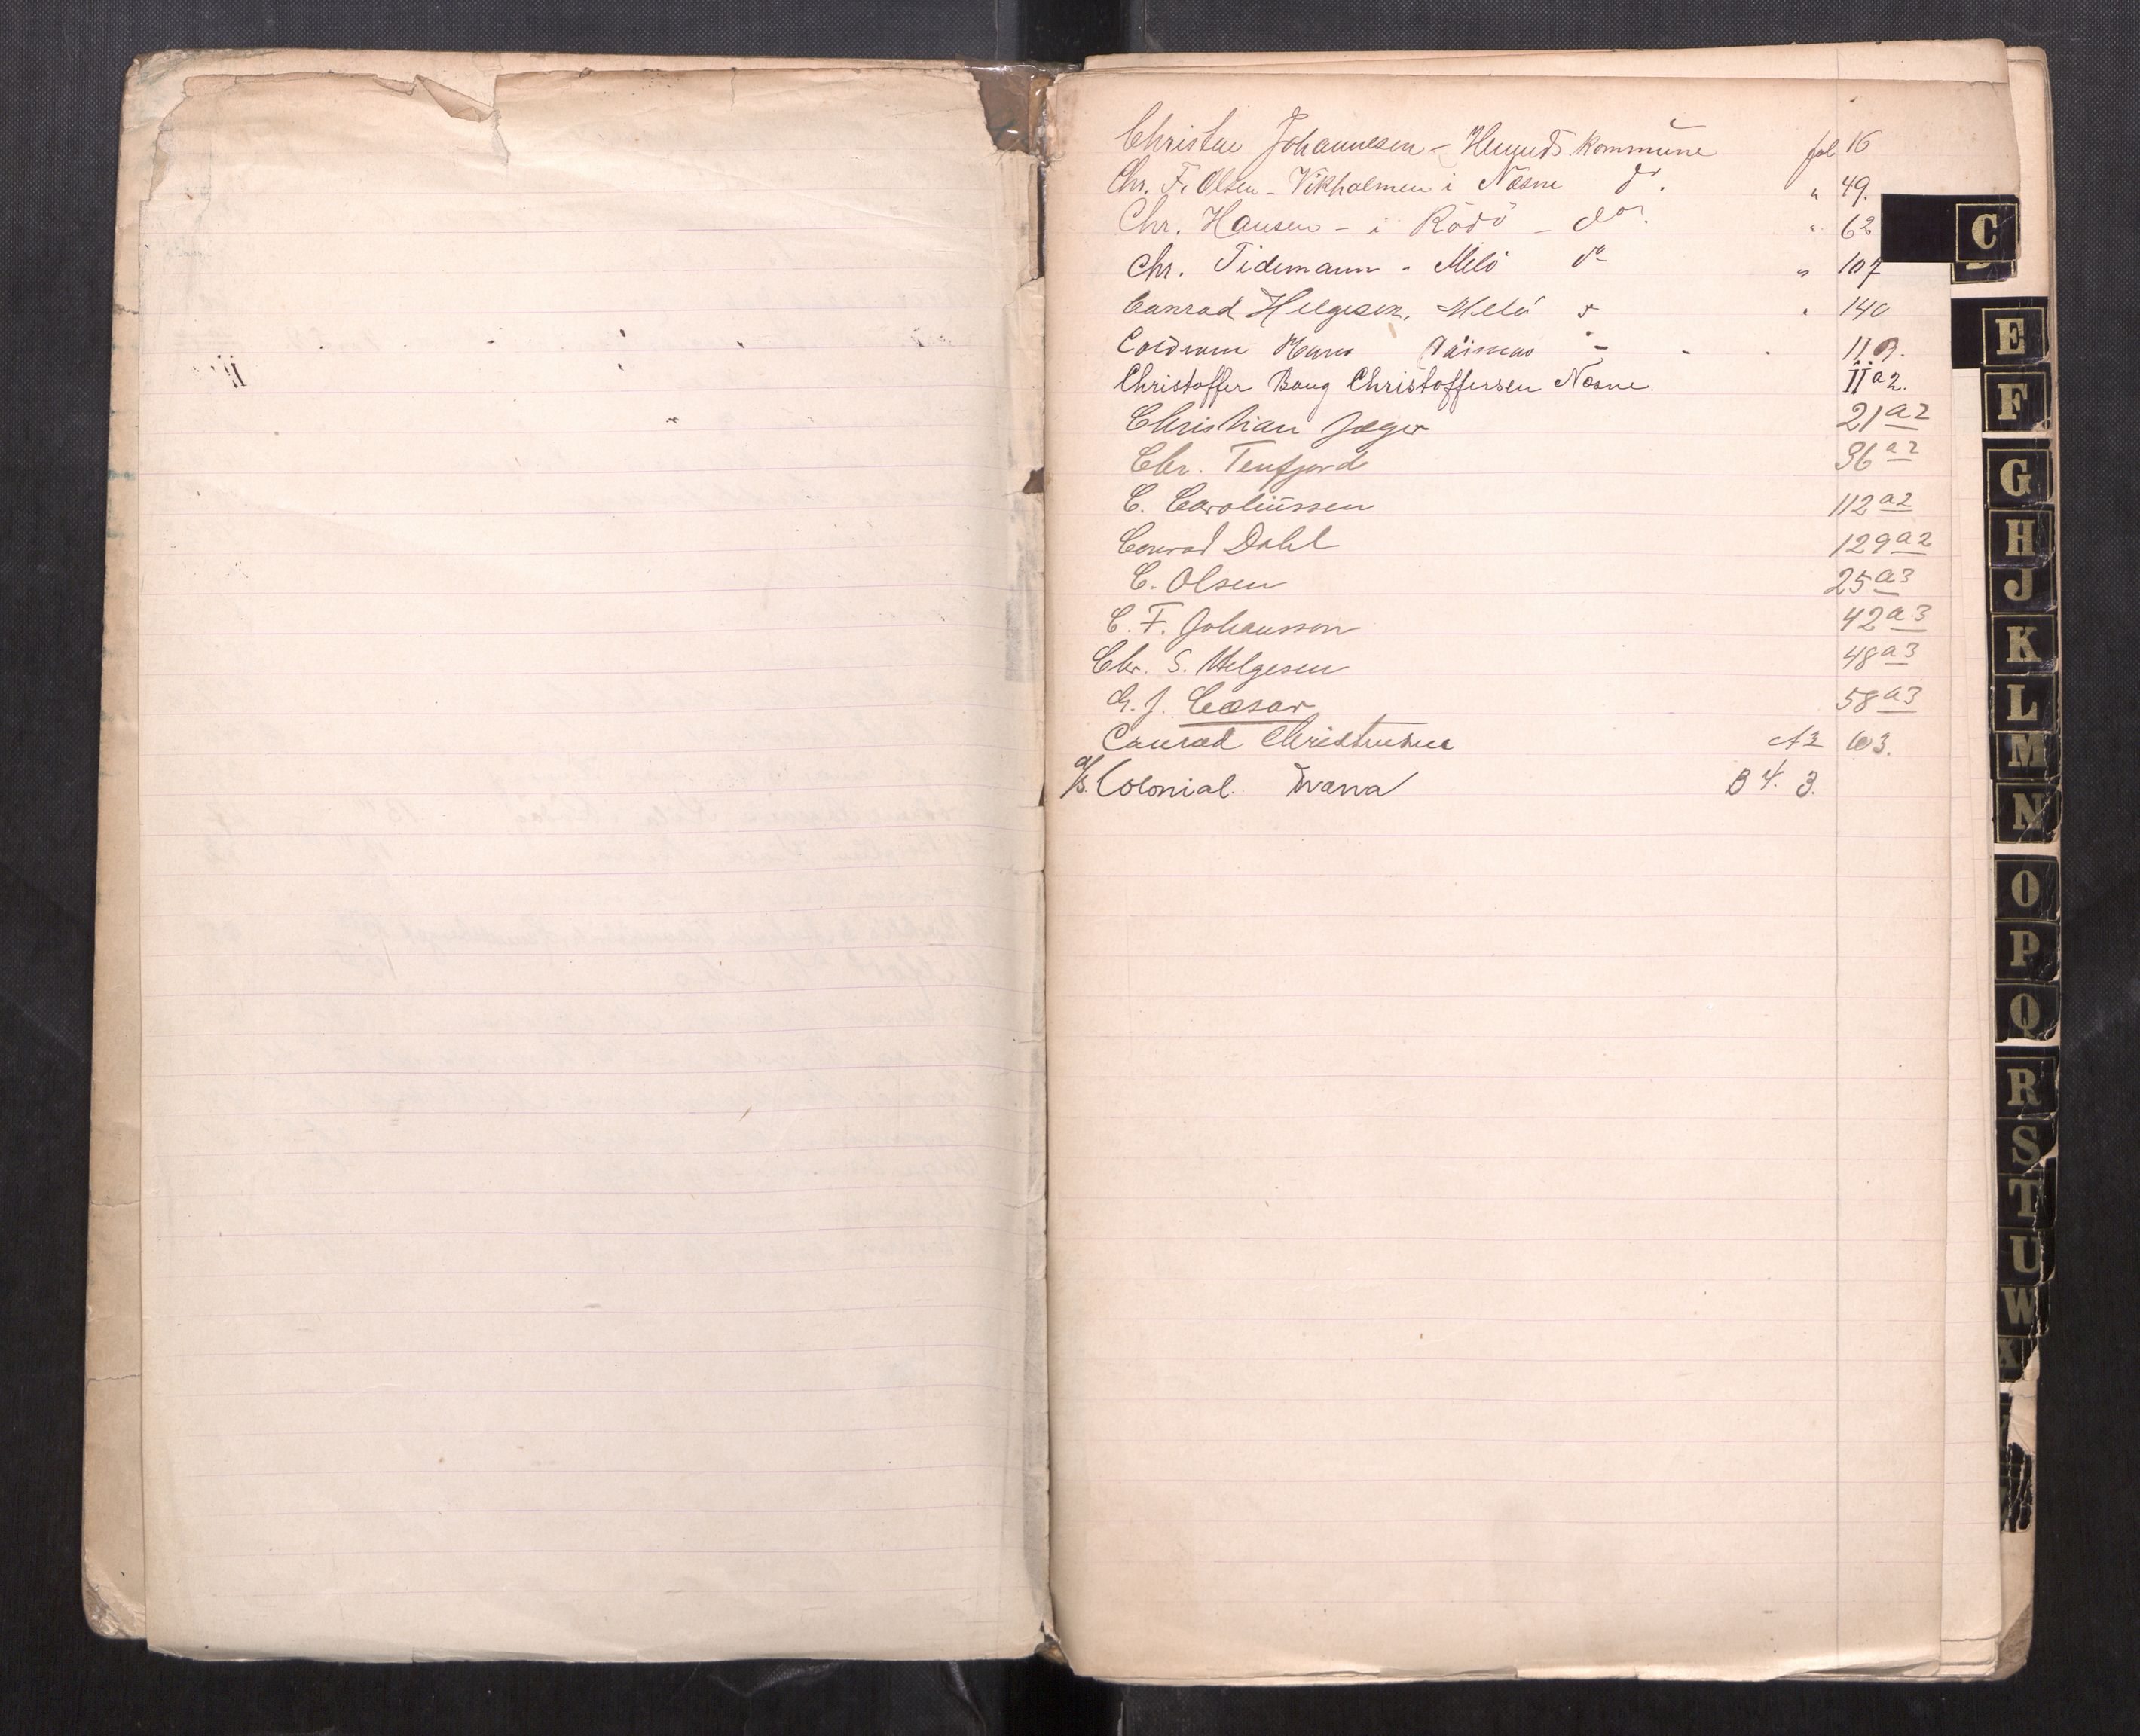 Christen Johannesen - kommune fol 16
Chr. F. Olsen - Vikholmen i Næsne do. " 49.
Chr. Hansen - i Rödö - do. " 62
Chr. Tidemann - Melö do " 107
Conrad Helgesen, Melö " 140
Hans 119.
Christoffer Baug Christoffersen Næsne. 11 a2.
Christian Jæger 21 a2
Chr. Tenfjord 36 a2
C. Caroliussen 112 a2
Conrad Dahl 129 a2
C. Olsen 25 a3
C. F. Johansson 42 a3
Chr. S. Helgesen 48 a3
G. J. Cæsar 58 a3
Conrad Christensen A3 103.
a/s. Colonial Mana B 4. 3.
C
E
F
G
H
J
K
L
M
N
O
P
Q
R
S
T
U
W
X